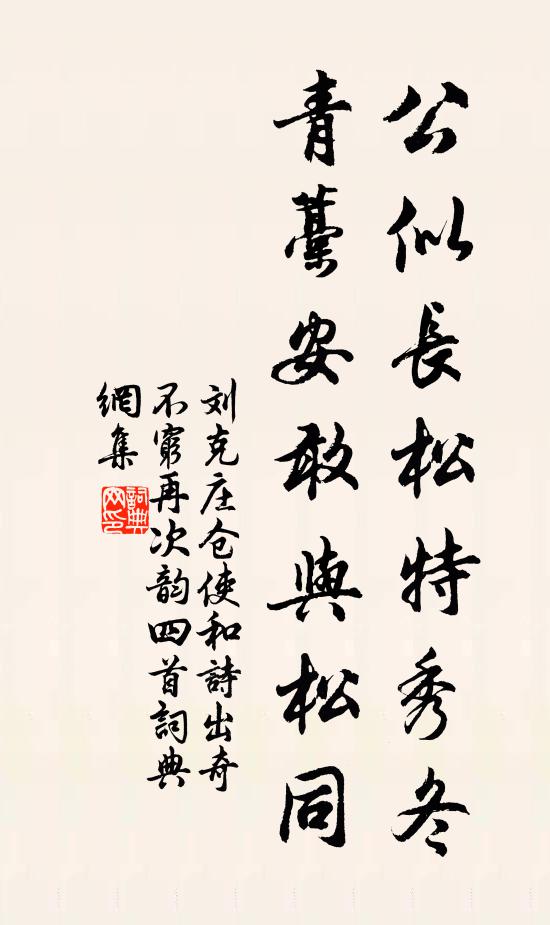 公似長松特秀冬
青藁安敢與松同
刘克庄仓使和詩出奇
不窮再次韵四首詞典
網集
詞典
网印